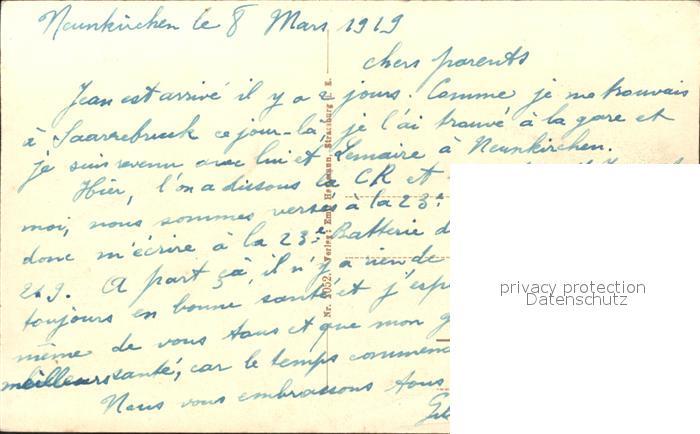 Neunkirchen le 8 Mars 1919
chers parents
Jean est arrivé il y a 2 jours. Comme je me trouvais
à Saarrebruck ce jour-là, je l'ai trouvé à la gare et
je suis revenu avec lui et Lemaire à Neunkirchen.
Hier, l'on a dissous la CR et
moi, nous sommes versés à la 23e
donc m'écrire à la 23e Batterie d
249. A part çà, il n'y a rien de
toujours en bonne santé et j'esp
même de vous tous et que mon g
meilleure santé, car le temps commen
Nous vous embrassons tous
Nr. 1052. Verlag: Em. Hartmann, Strassburg i. E.
privacy protection
Datenschutz